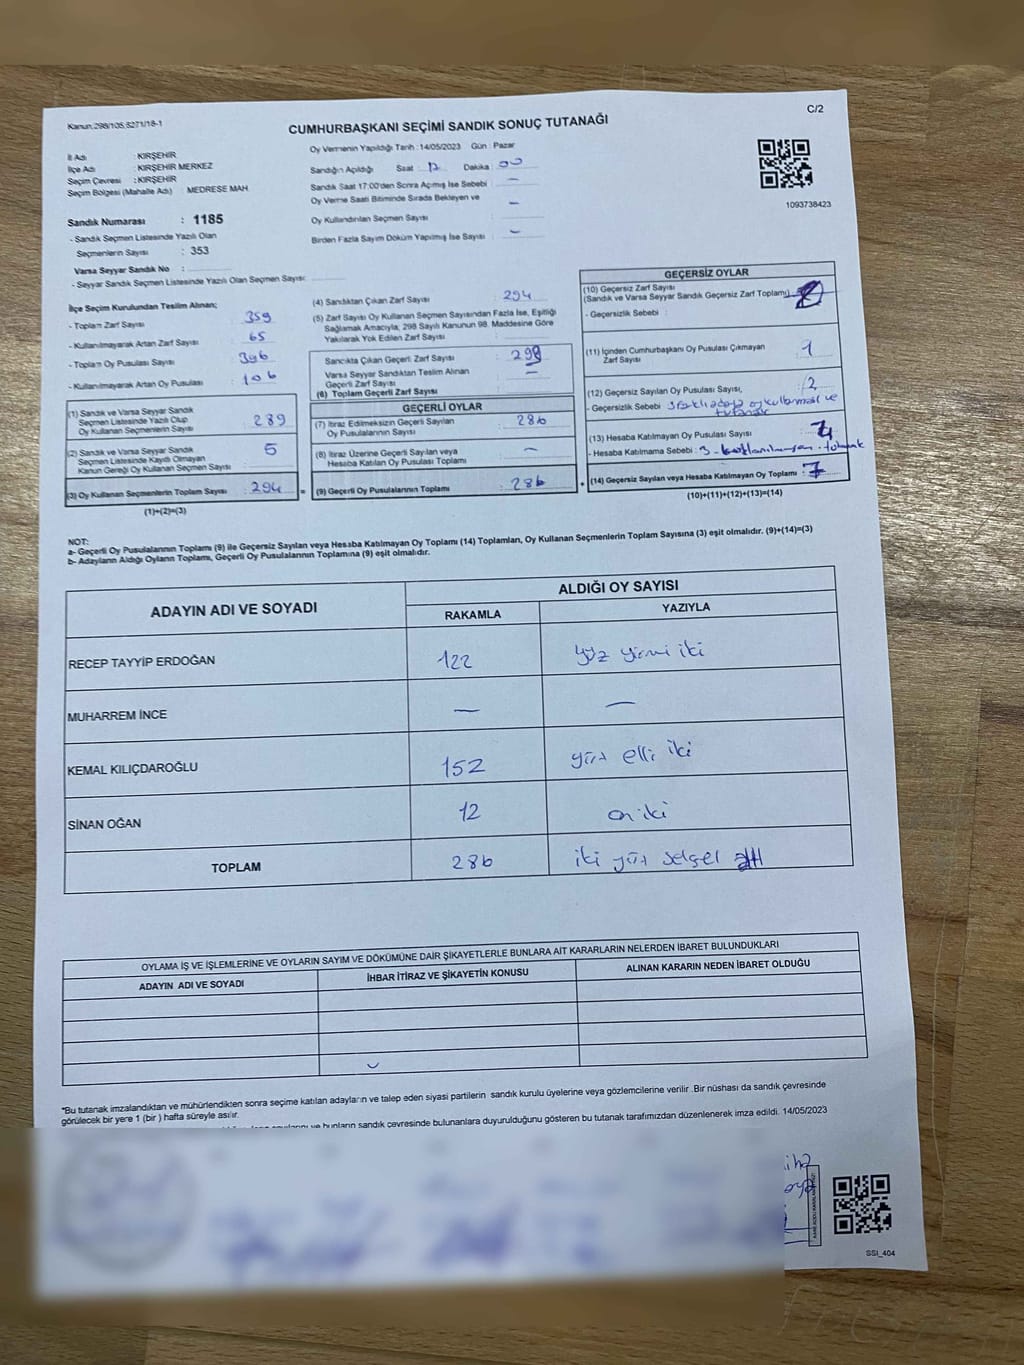 Kanun:298/105,6271/18-1
C/2
CUMHURBAŞKANI SEÇİMİ SANDIK SONUÇ TUTANAĞI
İl Adı : KIRŞEHİR
İlçe Adı : KIRŞEHİR MERKEZ
Seçim Çevresi : KIRŞEHİR
Seçim Bölgesi (Mahalle Adı) : MEDRESE MAH.
Sandık Numarası : 1185
- Sandık Seçmen Listesinde Yazılı Olan
Seçmenlerin Sayısı : 353
Varsa Seyyar Sandık No :
- Seyyar Sandık Seçmen Listesinde Yazılı Olan Seçmen Sayısı:
Oy Vermenin Yapıldığı Tarih : 14/05/2023 Gün : Pazar
Sandığın Açıldığı Saat : 17 Dakika : 00
Sandık Saat 17:00'den Sonra Açımış İse Sebebi : —
Oy Verme Saati Bitiminde Sırada Bekleyen ve
Oy Kullandırılan Seçmen Sayısı : —
Birden Fazla Sayım Döküm Yapılmış İse Sayısı : —
1093738423
İlçe Seçim Kurulundan Teslim Alınan;
- Toplam Zarf Sayısı : 359
- Kullanılmayarak Artan Zarf Sayısı : 65
- Toplam Oy Pusulası Sayısı : 396
- Kullanılmayarak Artan Oy Pusulası : 106
(1) Sandık ve Varsa Seyyar Sandık
Seçmen Listesinde Yazılı Olup
Oy Kullanan Seçmenlerin Sayısı : 289
(2) Sandık ve Varsa Seyyar Sandık
Seçmen Listesinde Kayıtlı Olmayan
Kanun Gereği Oy Kullanan Seçmen Sayısı : 5
(3) Oy Kullanan Seçmenlerin Toplam Sayısı : 294
(1)+(2)=(3)
(4) Sandıktan Çıkan Zarf Sayısı : 294
(5) Zarf Sayısı Oy Kullanan Seçmen Sayısından Fazla İse, Eşitliği
Sağlamak Amacıyla, 298 Sayılı Kanunun 98. Maddesine Göre
Yakılarak Yok Edilen Zarf Sayısı :
Sandıkta Çıkan Geçerli Zarf Sayısı :
Varsa Seyyar Sandıktan Teslim Alınan
Geçerli Zarf Sayısı : —
(6) Toplam Geçerli Zarf Sayısı :
GEÇERLİ OYLAR
(7) İtiraz Edilmeksizin Geçerli Sayılan
Oy Pusulalarının Sayısı : 286
(8) İtiraz Üzerine Geçerli Sayılan veya
Hesaba Katılan Oy Pusulası Toplamı : —
= (9) Geçerli Oy Pusulalarının Toplamı : 286 +
GEÇERSİZ OYLAR
(10) Geçersiz Zarf Sayısı
(Sandık ve Varsa Seyyar Sandık Geçersiz Zarf Toplamı) :
- Geçersizlik Sebebi :
(11) İçinden Cumhurbaşkanı Oy Pusulası Çıkmayan
Zarf Sayısı : 1
(12) Geçersiz Sayılan Oy Pusulası Sayısı, : 2
- Geçersizlik Sebebi : oy kullanmak ve
(13) Hesaba Katılmayan Oy Pusulası Sayısı :
- Hesaba Katılmama Sebebi :
(14) Geçersiz Sayılan veya Hesaba Katılmayan Oy Toplamı : 7
(10)+(11)+(12)+(13)=(14)
NOT:
a- Geçerli Oy Pusulalarının Toplamı (9) ile Geçersiz Sayılan veya Hesaba Katılmayan Oy Toplamı (14) Toplamları, Oy Kullanan Seçmenlerin Toplam Sayısına (3) eşit olmalıdır. (9)+(14)=(3)
b- Adayların Aldığı Oyların Toplamı, Geçerli Oy Pusulalarının Toplamına (9) eşit olmalıdır.
ADAYIN ADI VE SOYADI
ALDIĞI OY SAYISI
RAKAMLA YAZIYLA
RECEP TAYYİP ERDOĞAN 122 yüz yirmi iki
MUHARREM İNCE — —
KEMAL KILIÇDAROĞLU 152 yüz elli iki
SİNAN OĞAN 12 on iki
TOPLAM 286 iki yüz seksen altı
OYLAMA İŞ VE İŞLEMLERİNE VE OYLARIN SAYIM VE DÖKÜMÜNE DAİR ŞİKAYETLERLE BUNLARA AİT KARARLARIN NELERDEN İBARET BULUNDUKLARI
ADAYIN ADI VE SOYADI İHBAR İTİRAZ VE ŞİKAYETİN KONUSU ALINAN KARARIN NEDEN İBARET OLDUĞU
*Bu tutanak imzalandıktan ve mühürlendikten sonra seçime katılan adayların ve talep eden siyasi partilerin sandık kurulu üyelerine veya gözlemcilerine verilir .Bir nüshası da sandık çevresinde
görülecek bir yere 1 (bir ) hafta süreyle asılır.
ve bunların sandık çevresinde bulunanlara duyurulduğunu gösteren bu tutanak tarafımızdan düzenlenerek imza edildi. 14/05/2023
SSI_404